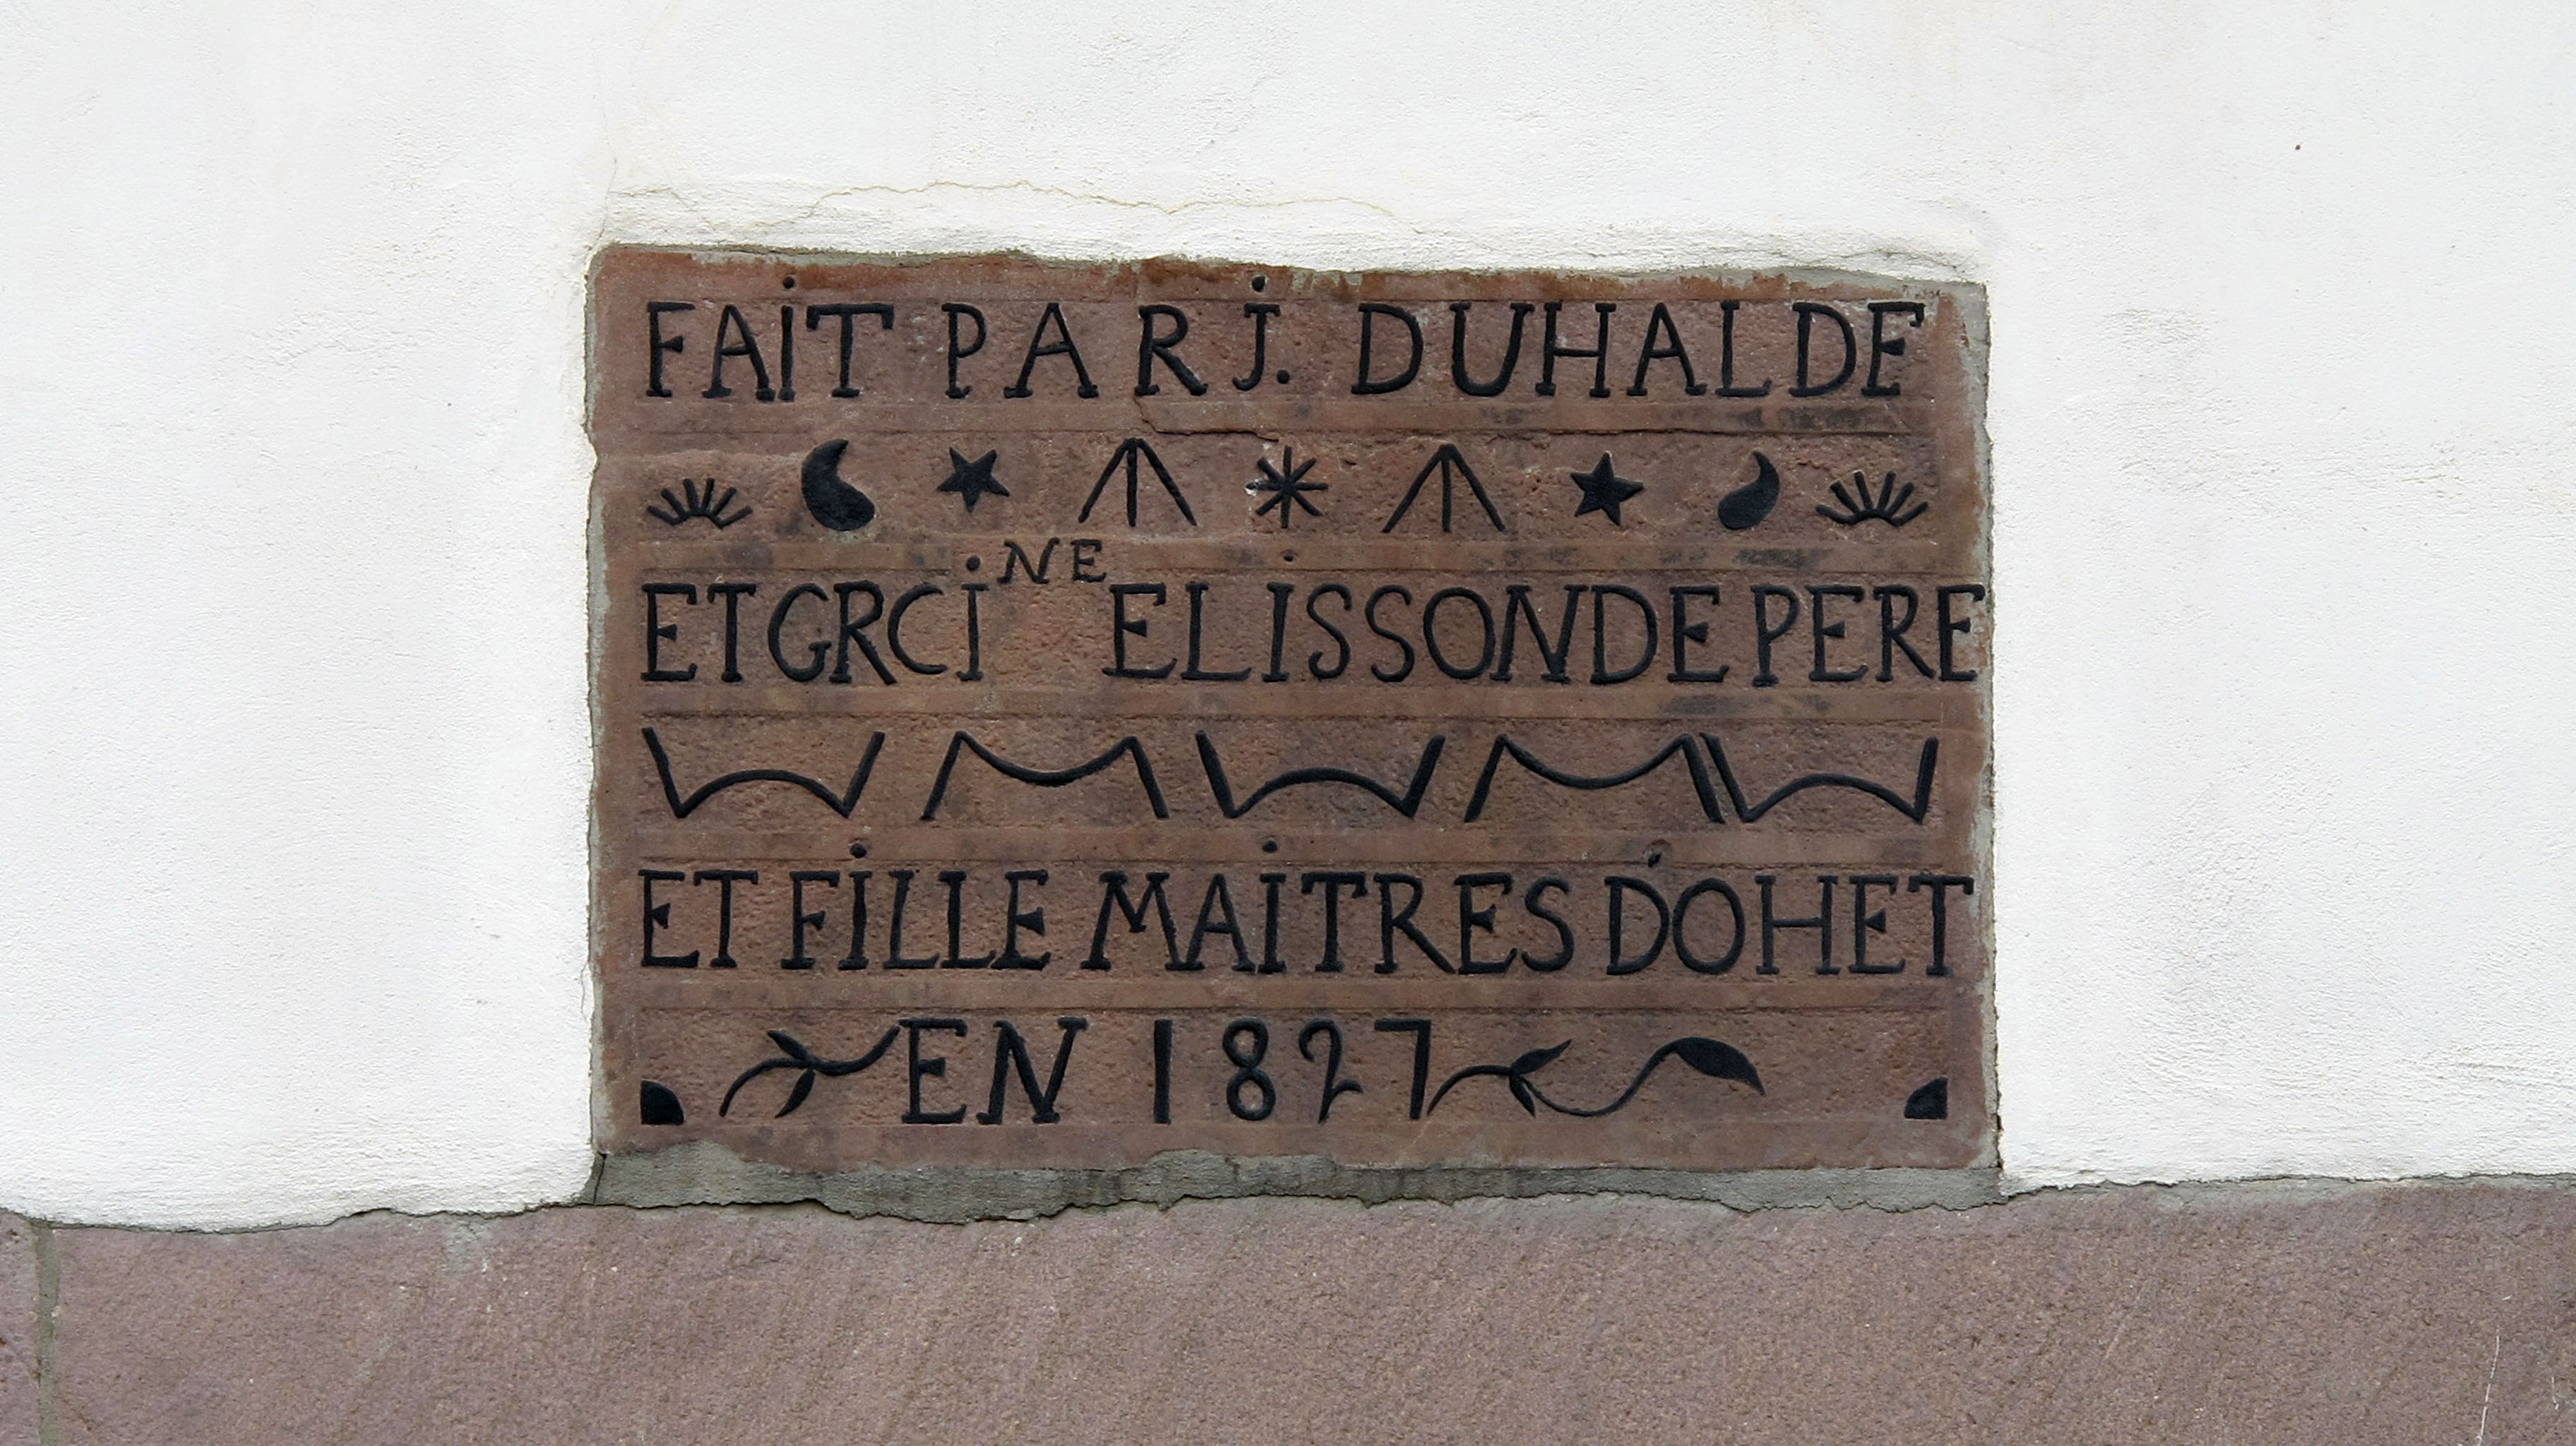 FAiT PAR J. DUHALDE
ET GRCiNE ELISSONDE PERE
ET FiLLE MAiTRES D'OHET
EN 1827